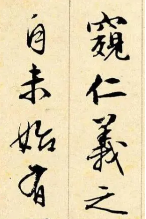 窺仁義之
自未始有